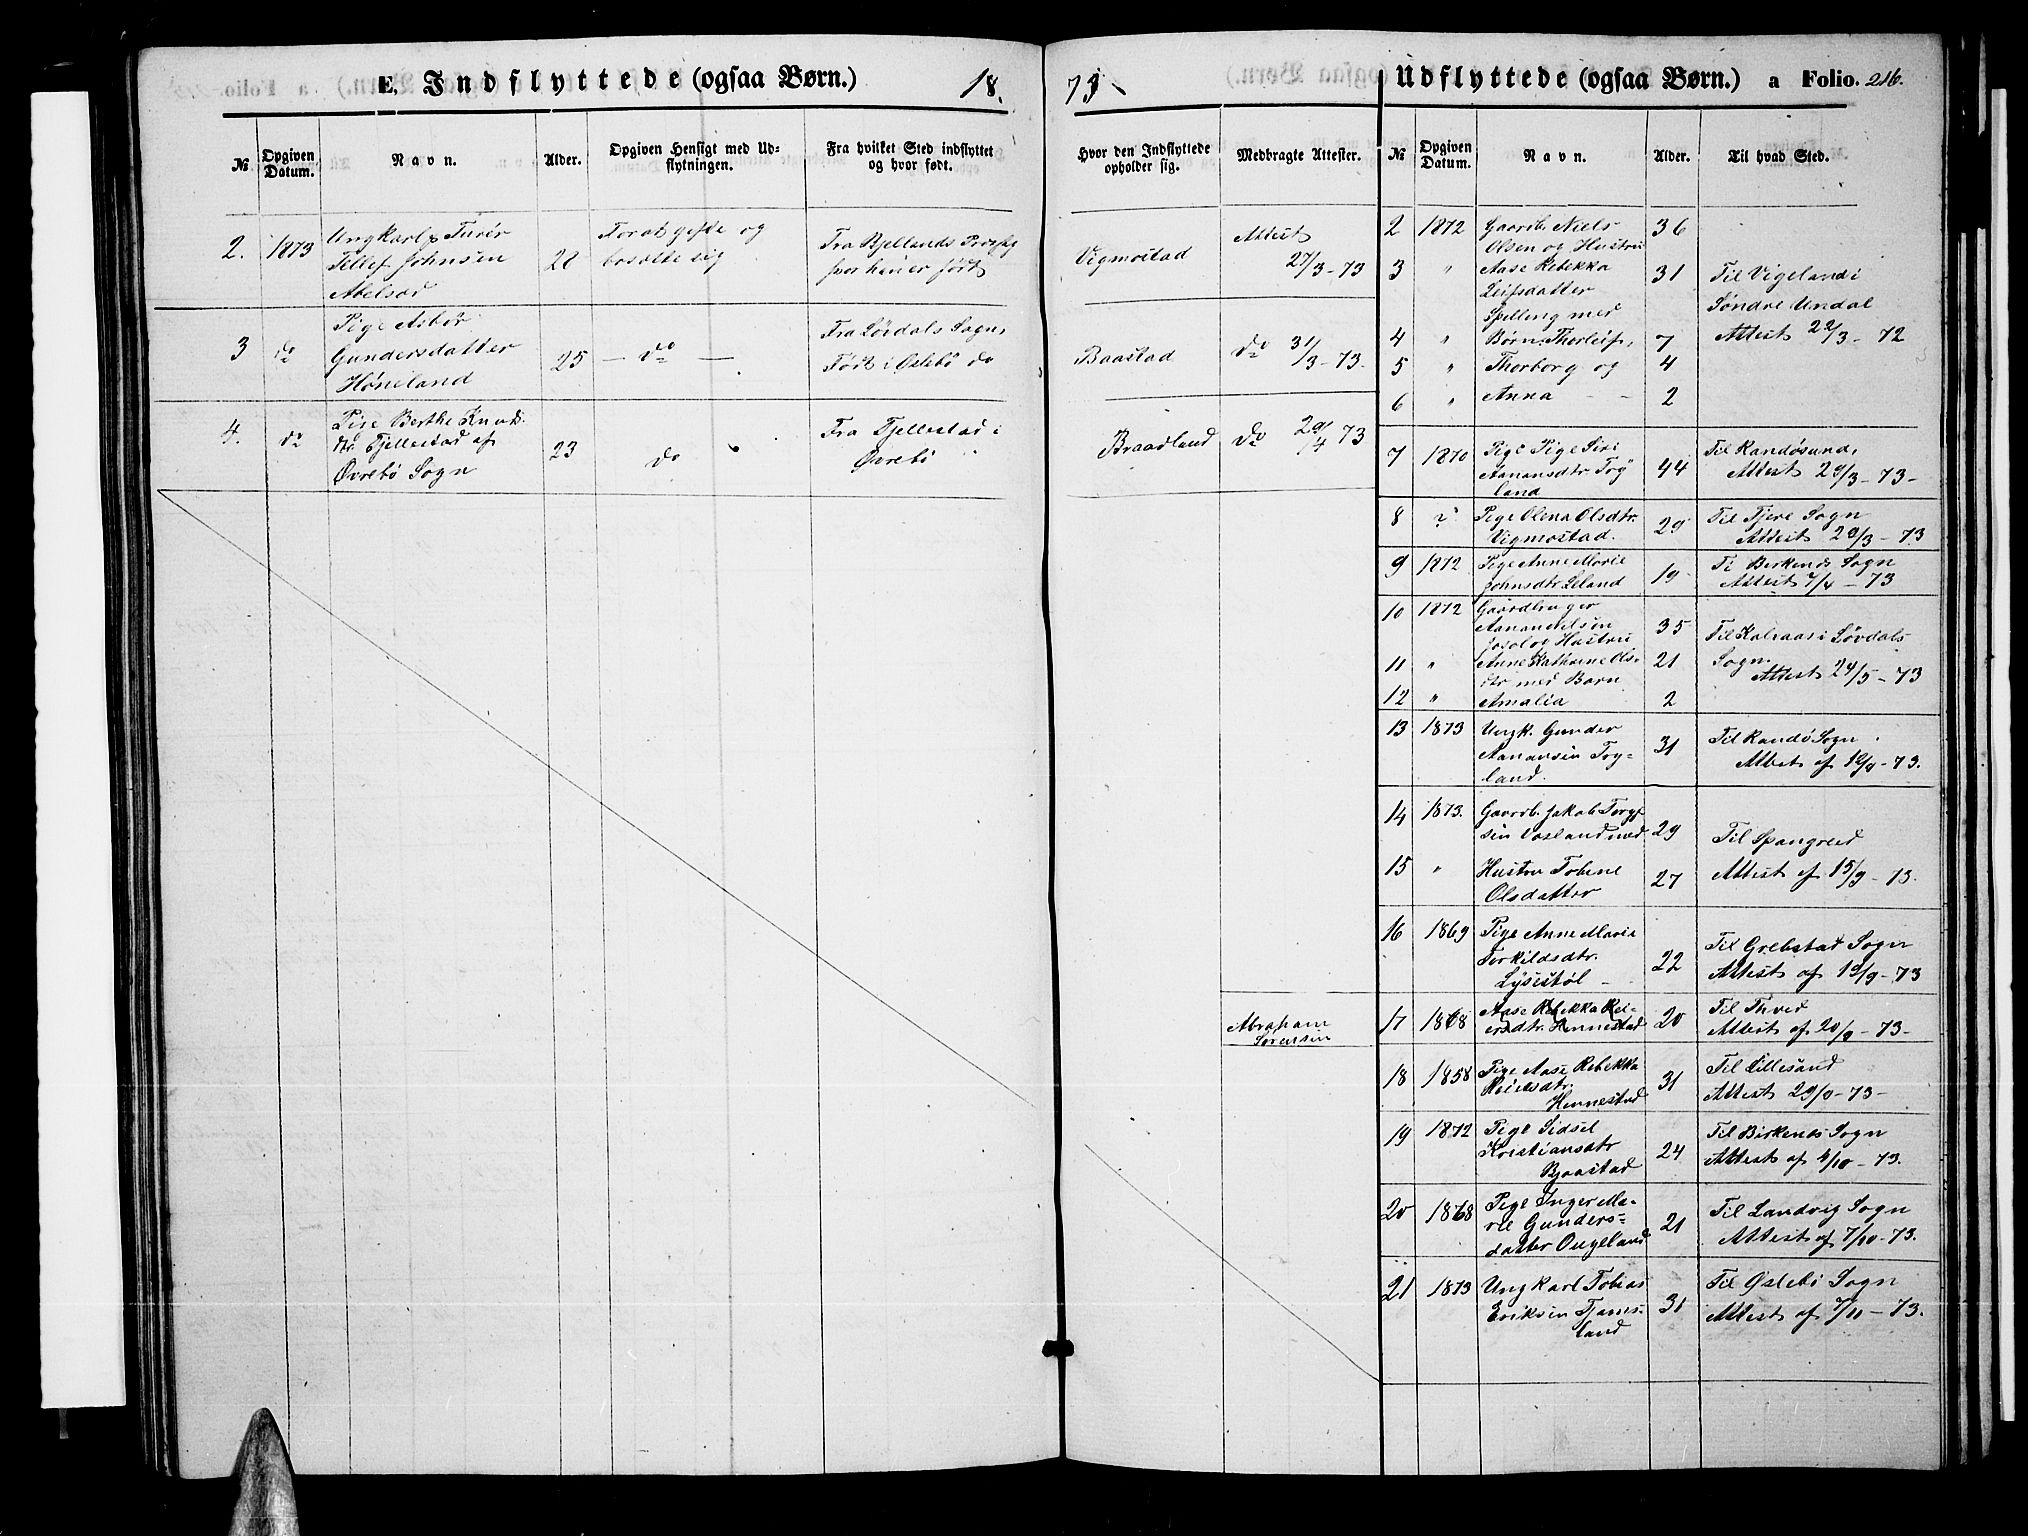 E. Indflyttede (ogsaa Børn.) 18.
No
Opgiven Datum.
Navn.
Alder.
Opgiven Hensigt med Udflytningen.
Fra hvilket Sted indflyttet og hvor født.
2. 1873 Ungkarl
Tellef Johnsen
Abelsød
28
gifte og
bosætte sig
Fra Bjellands Prgjld
hvor han er født
3 do Pige Asbør
Gundersdatter
Høneland
25 — do —
Fra Løvdals Sogn,
Født i Øslebø do
4. do Pige Berthe Knuds
dtr Fjellestad af
Øvrebø Sogn
23 do
Fra Fjellestad i
Øvrebø
73
Hvor den Indflyttede opholder sig.
Medbragte Attester.
Vigmostad
Attest
27/3 - 73
Baastad do 31/3 - 73.
Braadland do 29/4 73
Abraham
Sørensen
Udflyttede (ogsaa Børn.) a Folio. 216.
No
Opgiven Datum.
Navn.
Alder.
Til hvad Sted.
2 1872 Gaardb. Niels 36
Olsen og Hustru
3 " Aase Rebekka 31
Leifsdatter
Spelling med
4 " Børn Thorleif, 7
5 " Thorborg og 4
6 " Anna - - 2
Til Vigeland i
Søndre Undal
Attest 22/3 - 72
7 1870 Pige Pige Siri
Aanansdtr Tøg
land
44
Til Randøsund,
Attest 29/3 - 73 -
8 ? Pige Olena Olsdtr.
Vigmostad.
29
Til Tjere Sogn
Attest 29/3 - 73
9 1872 Pige Anne Marie
Johnsdtr. Leland
19
Ti Birkenes Sogn
Attest 7/4 - 73
10 1872 Gaardbruger
35
og Hustru
11 " Anne Kathrine Ols- 21
dtr med Barn
12 " Amalia 2
Til Kalraas i Løvdals
Sogn.
Attest 24/5 - 73
13 1873 Ungk. Gunder
Aanansen Tøg-
land.
31
Til Randø Sogn.
Attest af 12/9 - 73.
14 1873. Gaardb. Jakob
29
15 " Hustru Tobine
Olsdatter
27
Til Spangreid
Attest af 15/9 - 73.
16 1869 Pige Anne Marie
Torkildsdtr.
Lysestøl -
22
Til Grebstad Sogn
Attest af 19/9 - 73
17 1868 Aase Rebekka Rei-
ersdtr. Hennestad
20
Til Thved
Attest af 20/9 - 73 -
18 1858 Pige Aase Rebekka
Reiersdtr.
Hennestad
31
Til Lillesand
Attest 29/9 - 73 -
19 1872 Pige Sidsel
Kristiansdtr
Bjaastad
24
Til Birkenes Sogn
Attest af 4/10 - 73.
20 1868 Pige Inger Ma-
rie Gunders-
datter Ougeland
21
Til Landvig Sogn
Attest af 7/10 - 73.
21 1873 Ungkarl Tobias
Eriksen Fjams-
land
31
Til Øslebø Sogn
Attest af 7/11 - 73.